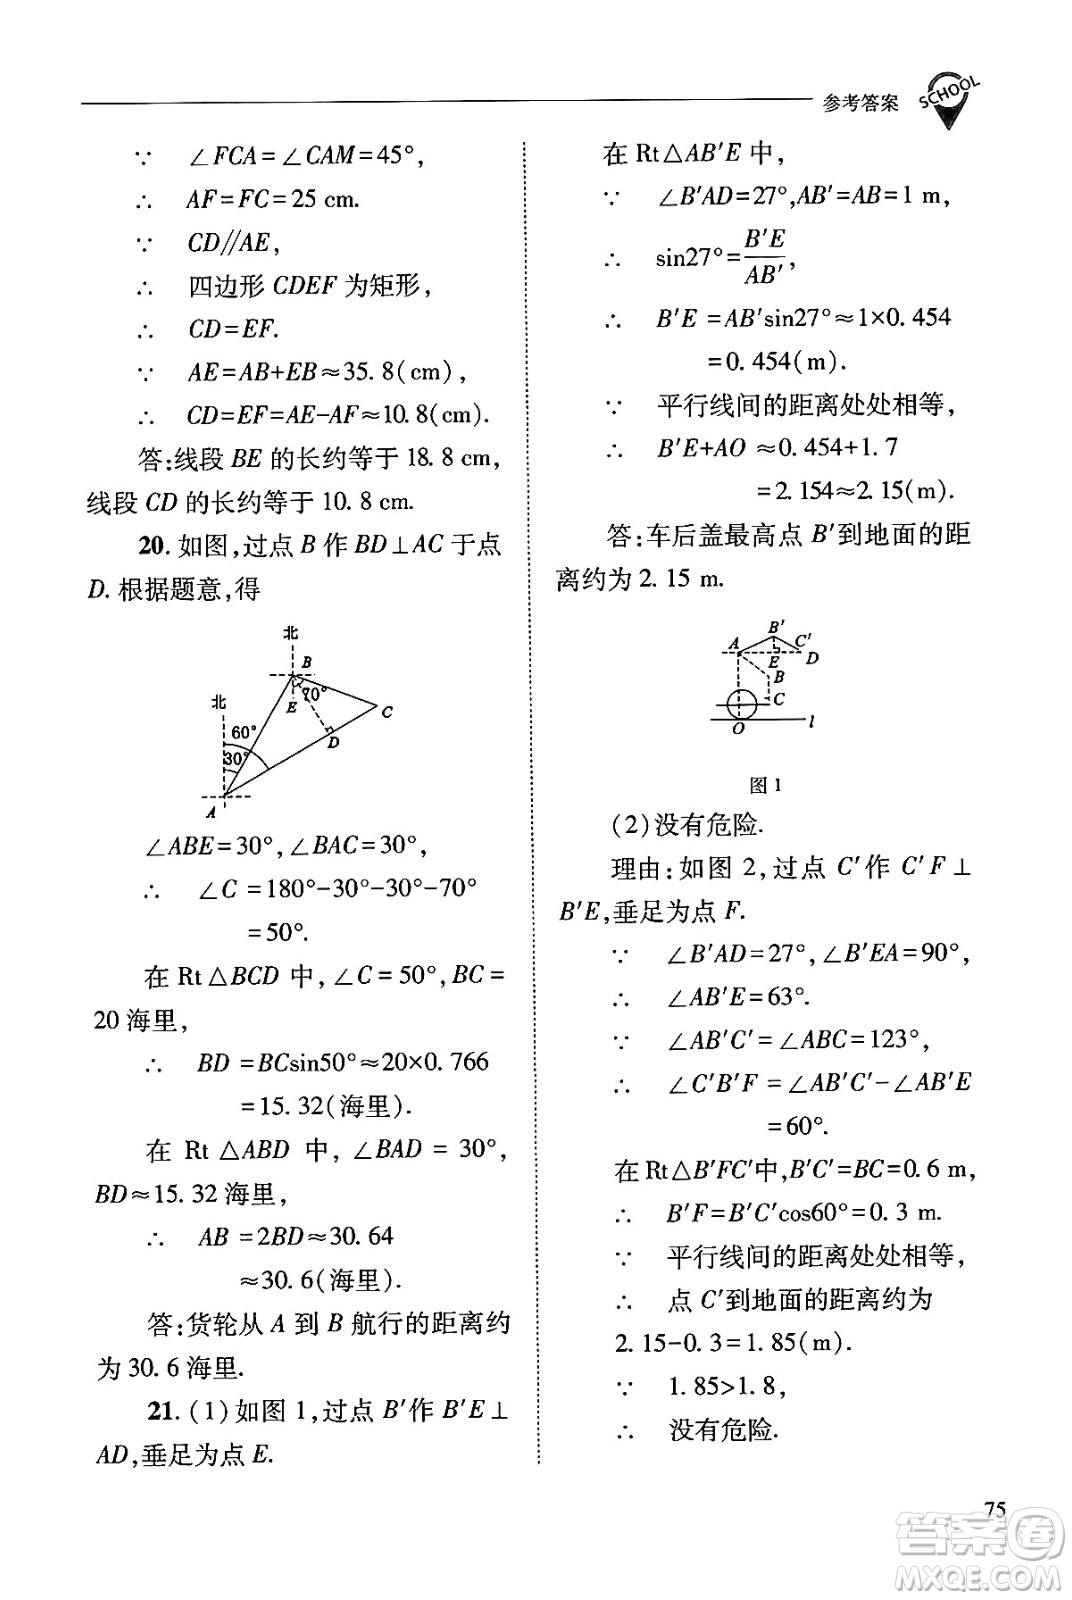 参考答案
SCHOOL
∵ ∠FCA=∠CAM=45°,
∴ AF=FC=25 cm.
∵ CD∥AE,
∴ 四边形 CDEF 为矩形,
∴ CD=EF.
∵ AE=AB+EB≈35.8(cm),
∴ CD=EF=AE-AF≈10.8(cm).
答:线段 BE 的长约等于 18.8 cm,
线段 CD 的长约等于 10.8 cm.
20. 如图,过点 B 作 BD⊥AC 于点
D. 根据题意,得
北
B
70°
E
C
北
60°
D
30°
A
∠ABE=30°,∠BAC=30°,
∴ ∠C =180°-30°-30°-70°
=50°.
在 Rt△BCD 中,∠C=50°,BC=
20 海里,
∴ BD =BCsin50°≈20×0.766
=15.32(海里).
在 Rt△ABD 中,∠BAD=30°,
BD≈15.32 海里,
∴ AB =2BD≈30.64
≈30.6(海里).
答:货轮从 A 到 B 航行的距离约
为 30.6 海里.
21. (1)如图 1,过点 B′作 B′E⊥
AD,垂足为点 E.
在 Rt△AB′E 中,
∵ ∠B′AD=27°,AB′=AB=1 m,
∴ sin27°=B′E/AB′,
∴ B′E =AB′sin27°≈1×0.454
=0.454(m).
∵ 平行线间的距离处处相等,
∴ B′E+AO ≈0.454+1.7
=2.154≈2.15(m).
答:车后盖最高点 B′到地面的距
离约为 2.15 m.
B′
A
C′
E
D
B
C
O
l
图 1
(2)没有危险.
理由:如图 2,过点 C′作 C′F⊥
B′E,垂足为点 F.
∵ ∠B′AD=27°,∠B′EA=90°,
∴ ∠AB′E=63°.
∵ ∠AB′C′=∠ABC=123°,
∴ ∠C′B′F =∠AB′C′-∠AB′E
=60°.
在Rt△B′FC′中,B′C′=BC=0.6 m,
∴ B′F=B′C′cos60°=0.3 m.
∵ 平行线间的距离处处相等,
∴ 点 C′到地面的距离约为
2.15-0.3=1.85(m).
∵ 1.85>1.8,
∴ 没有危险.
75
答案圈
MXQE.COM